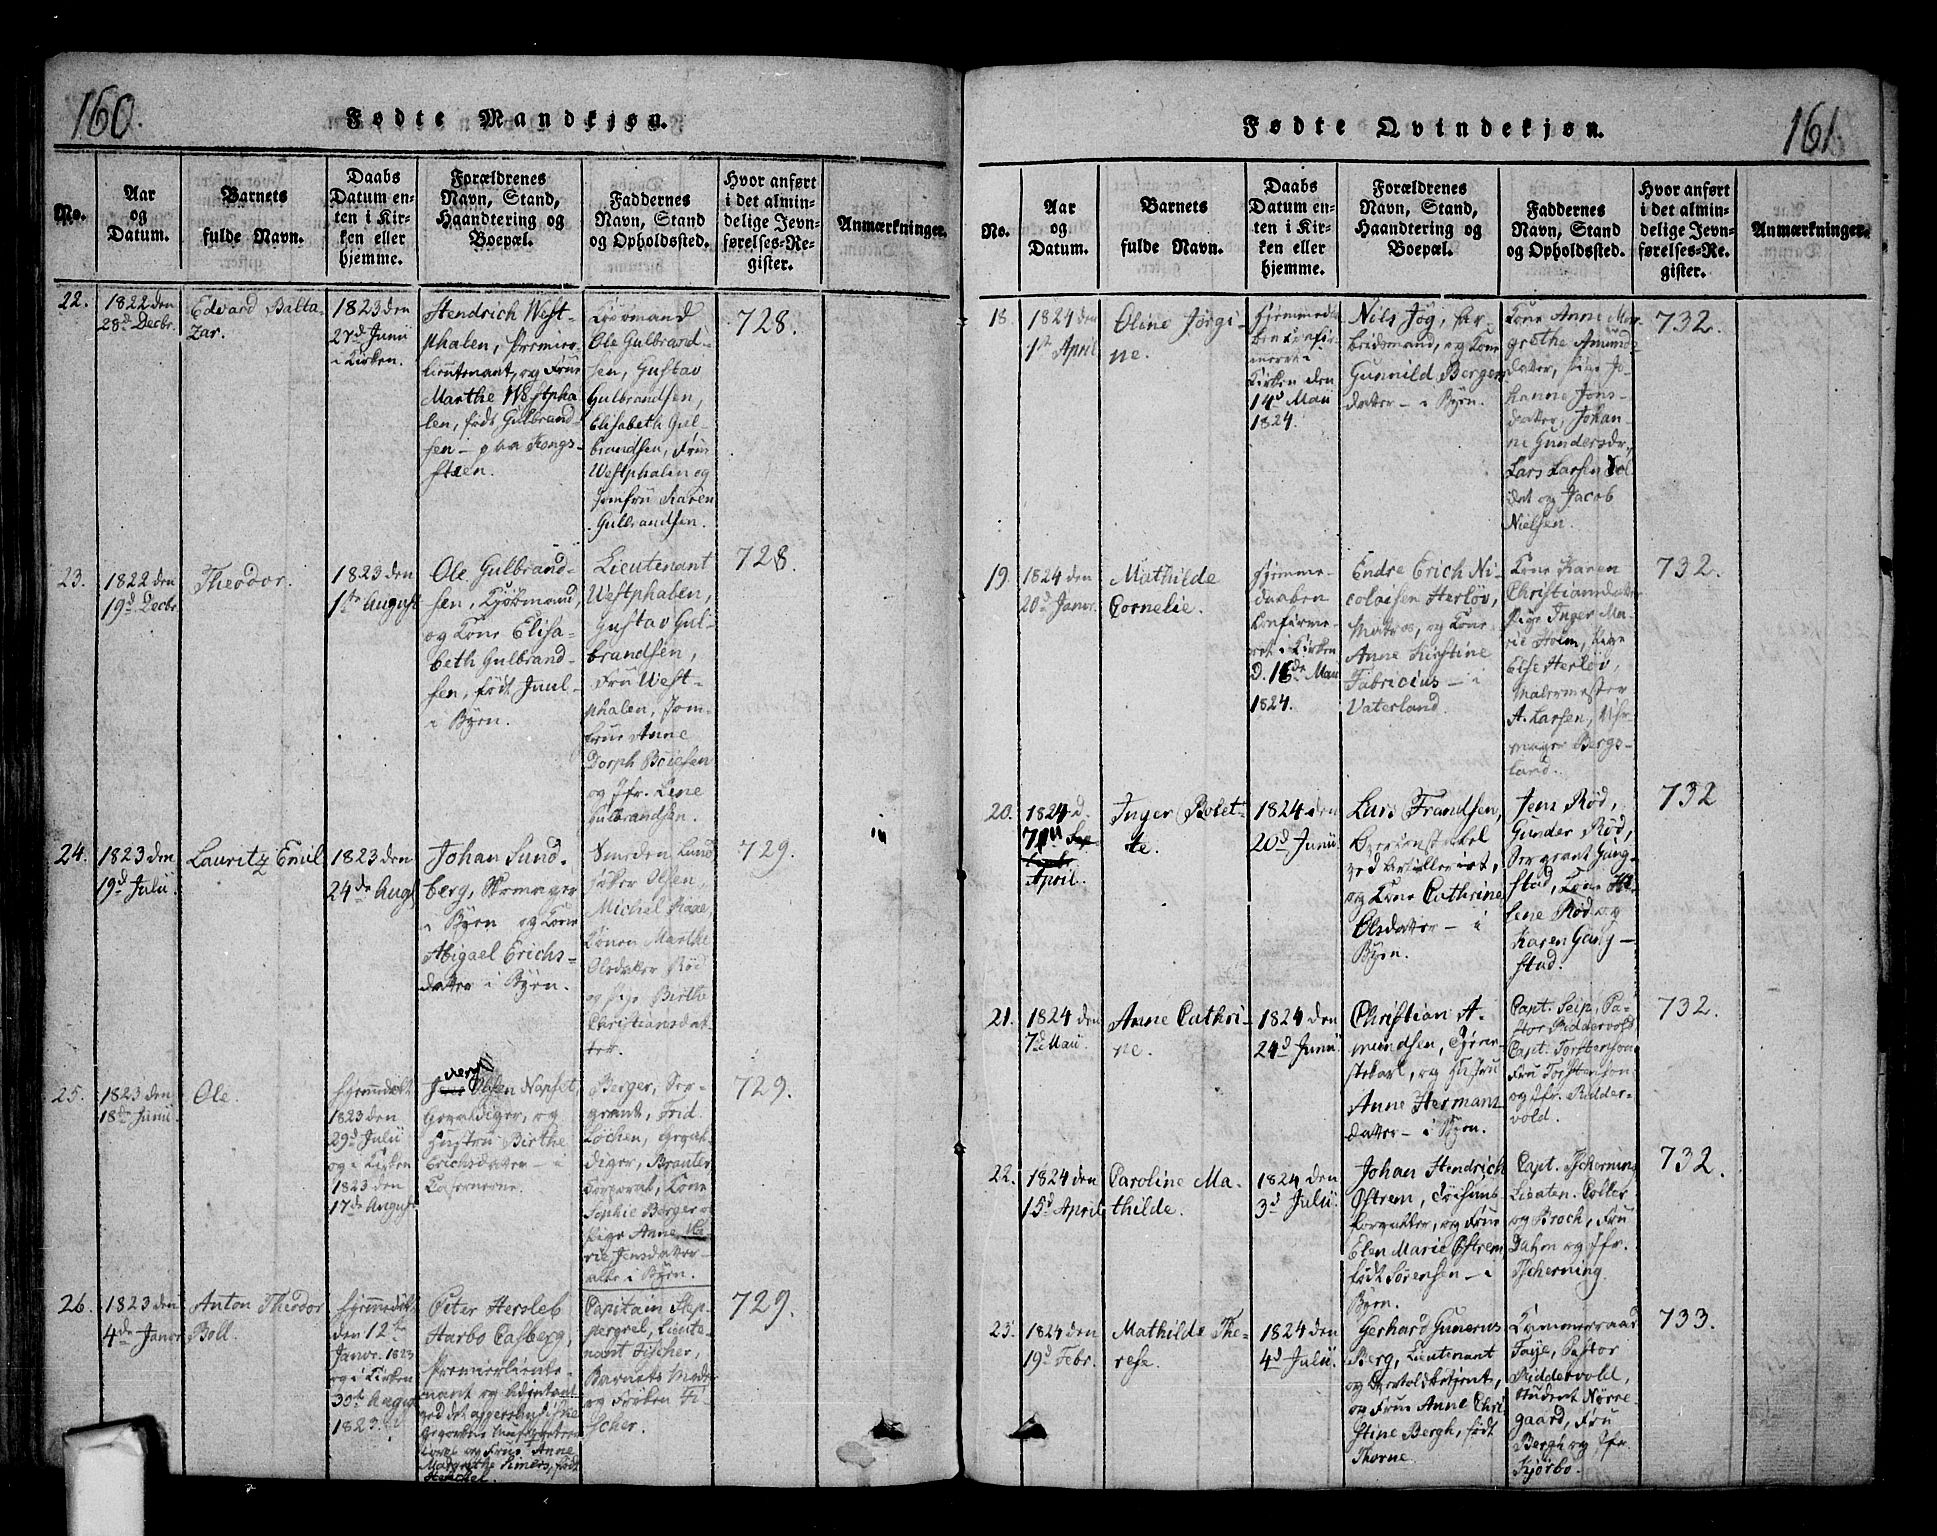 160.
Fødte Mandkjøn.
No.
Aar
og
Datum.
Barnets
fulde Navn.
Daabs
Datum en-
ten i Kir-
ken eller
hjemme.
Forældrenes
Navn, Stand,
Haandtering og
Boepæl.
Faddernes
Navn, Stand
og Opholdssted.
Hvor anført
i det almin-
delige Jevn-
førelses-Re-
gister.
Anmærkninger.
22.
1822 den
28d Decbr.
Edvard Balta-
zar.
1823 den
27d Junii
i Kirken.
Hendrich West-
phalen, Premier-
lieutenant, og Frue
Marthe Westpha-
len, født Gulbrand-
sen - paa Kongs-
steen.
Kjøbmand
Ole Gulbrand-
sen, Gustav
Gulbrandsen,
Elisabeth Gul-
brandsen, Frue
Westphalen og
Jomfru Karen
Gulbrandsen.
728.
23.
1822 den
19d Decbr.
Theodor.
1823 den
1ste August
Ole Gulbrand-
sen, Kjøbmand,
og Kone Elisa-
beth Gulbrand-
sen, født Juul -
i Byen.
Lieutenant
Westphalen,
Gustav Gul-
brandsen,
Fru West-
phalen, Jom-
frue Anne
Dorph Boiesen
og Jfr. Lene
Gulbrandsen.
728.
24.
1823 den
19d Julii.
Lauritz Emil
1823 den
24de Augt.
Johan Sund-
berg, Skomager
i Byen og Kone
Abigael Erichs-
datter i Byen.
Smeden
Olsen,
Michel
Konen Marthe
Olsdatter Rød
og Pige Birthe
Christiansdat-
ter.
729.
25.
1823 den
18de Junii.
Ole.
hjemmedøbt
1823 den
29d Julii
og i Kirken
1823 den
17de August
Olsen Napset,
Gevaldiger, og
Hustru Birthe
Erichsdatter - i
Casernerne.
Berger, Ser-
geant,
Lochen,
diger,
Corporal, Kone
Sophie Berger og
Pige Anne Ma-
rie Jensdatter -
alle i Byen.
729.
26.
1823 den
4de Janvr
Anton Theodor
Boll.
hjemmedøbt
den 12te
Janvr. 1823
og i Kirken
30te August
1823.
Peter Hersleb
Harbo Casberg,
Premierlieute-
nant og Adjutant
ved det aggershusiske
og Frue Anne
Margrethe født
Capitain Step-
Lieute-
nant Fischer,
Barnets Moder
og Frøken Fi-
scher.
729.
161.
Fødte Qvindekjøn.
No.
Aar
og
Datum.
Barnets
fulde Navn.
Daabs
Datum en-
ten i Kir-
ken eller
hjemme.
Forældrenes
Navn, Stand,
Haandtering og
Boepæl.
Faddernes
Navn, Stand
og Opholdssted.
Hvor anført
i det almin-
delige Jevn-
førelses-Re-
gister.
Anmærkninger.
18.
1824 den
1ste April
Oline Jørgi-
ne.
hjemmeda-
ben confir-
meret i
Kirken den
14d Maii
1824.
Nils Jøg, Ar-
beidsmand, og Kone
Gunnild Bergers-
datter - i Byen.
Kone Anne Mar-
grethe Amunds-
datter, Pige Jo-
hanne Jons-
datter, Johan-
ne Gundersdr.
Lars Larsen Sol-
dat og Jacob
Nielsen.
732.
19.
1824 den
20d Janvr.
Mathilde
Cornelie.
hjemme-
daaben
confirme-
ret i Kirken
d. 16de Maii
1824.
Endre Erich Ni-
colaisen Herlov,
Matros, og Kone
Anne Kirstine
Fabricius - i
Vaterland.
Kone Karen
Christiansdatter
Pige Inger Ma-
rie Holm, Pige
Else Herlov,
Malermester
A. Larsen, Uhr-
mager Bergs-
land.
732.
20.
1824 d.
April.
Inger Bolet-
te.
1824 den
20d Junii
Lars Frandsen,
ved Artilleriet,
og Kone Cathrine
Olsdatter - i
Byen.
Jens Rød,
Gunder Rød,
Sergeant Gang-
stad, Kone He-
lene Rød og
Karen Gang-
stad.
732
21.
1824 den
7d Maii
Anne Cathri-
ne.
1824 den
24d Junii
Christian A-
mundsen,
og Hustru
Anne Hermans-
datter - i Byen.
Capt. Seip, Pa-
stor Riddervold,
Capt. Torstenson
Fru Torstenson
og Jfr. Ridder-
vold.
732.
22.
1824 den
15d April
Caroline Ma-
thilde.
1824 den
3d Julii.
Johan Hendrich
Østrem,
forvalter, og Frue
Elen Marie Østrem
født Sørensen - i
Byen.
Capt. Tscherning
Lieuten.
og Broch, Fru
Dahm og Jfr.
Tscherning.
732.
23.
1824 den
19d Febr.
Mathilde The-
rese.
1824 den
4d Julii.
Gerhard Gunerus
Berg, Lieutenant
og
og Frue Anne Chri-
stine Bergh, født
Thorne.
Kammerraad
Faye, Pastor
Riddervold,
Student Nørre-
gaard, Fru
Bergh og Jfr.
Kjørbo.
733.